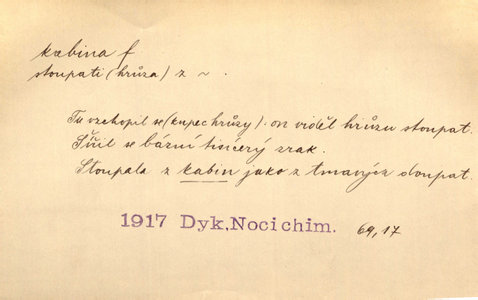 kabina f
stoupati (hrůza) z ~ .
Tu vzchopil se (kupec hrůzy). on viděl hrůzu stoupat.
Šílil se bázní tisícerý zrak.
Stoupala z kabin jako z tmavých doupat.
1917 Dyk, Noci chim. 69,17